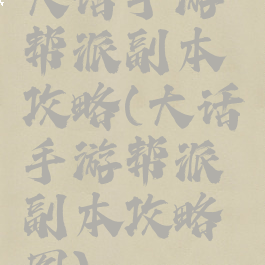 大话手游
帮派副本
攻略(大话
手游帮派
副本攻略
图)